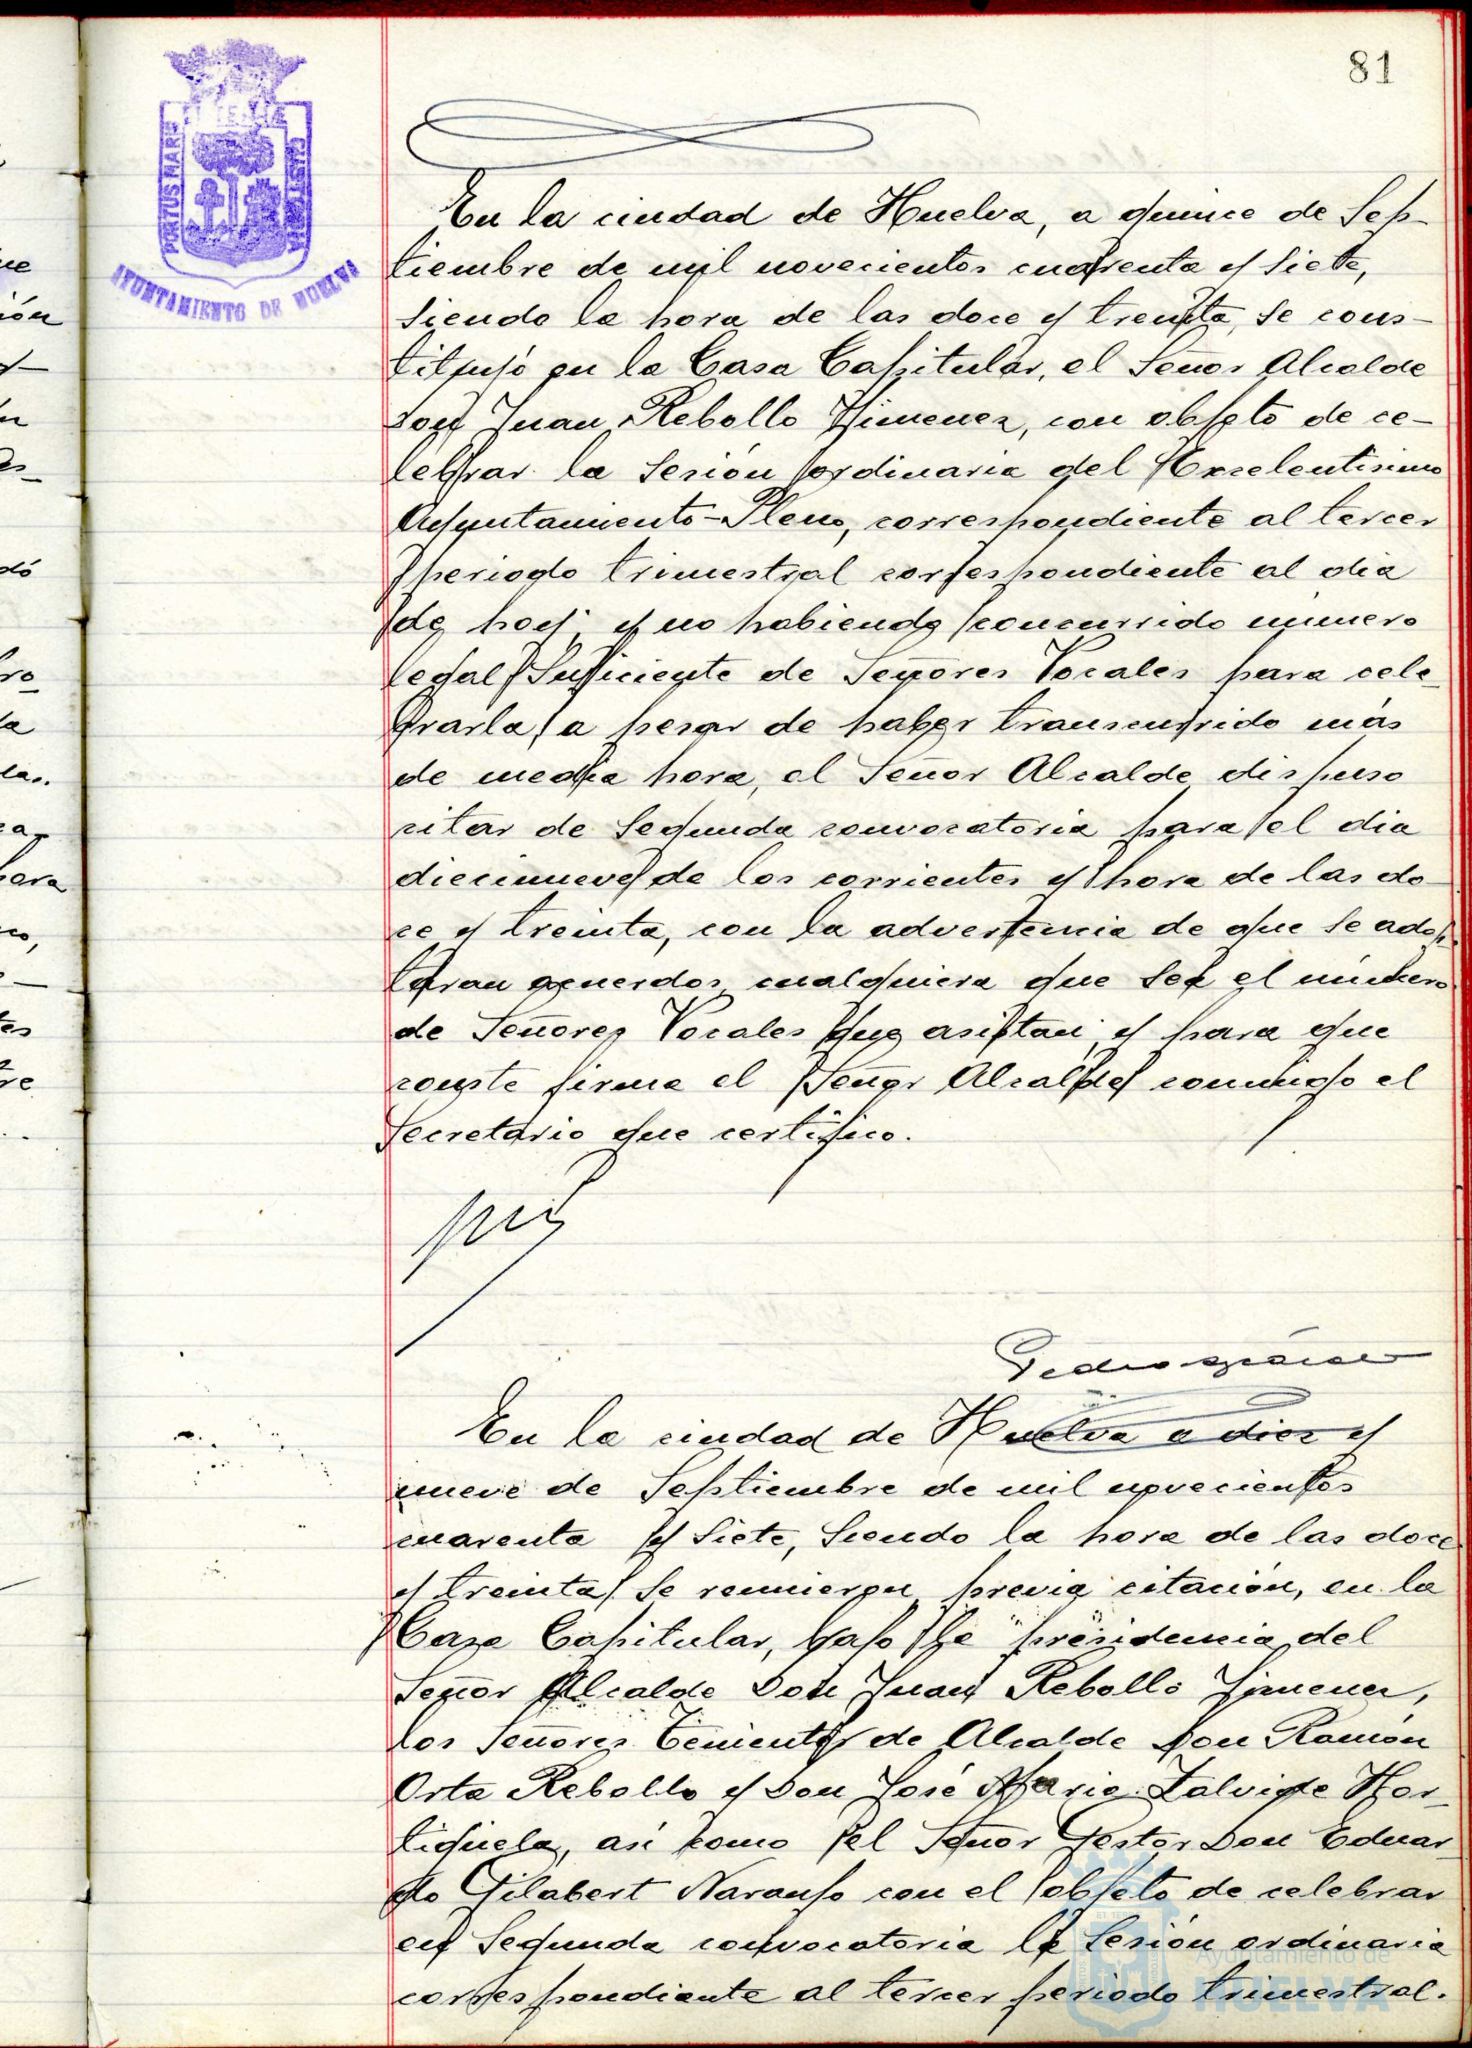 81
PORTUS MARIS
ET TERRAE
CUSTODIA
AYUNTAMIENTO DE HUELVA
En la ciudad de Huelva, a quince de Sep-
tiembre de mil novecientos cuarenta y siete,
siendo la hora de las doce y treinta, se cons-
tituyó en la Casa Capitular, el Señor Alcalde
Don Juan Rebollo Jimenez, con objeto de ce-
lebrar la sesión ordinaria del Excelentisimo
Ayuntamiento-Pleno, correspondiente al tercer
periodo trimestral correspondiente al dia
de hoy, y no habiendo concurrido número
legal suficiente de Señores Vocales para cele-
brarla, a pesar de haber transcurrido más
de media hora, el Señor Alcalde, dispuso
citar de segunda convocatoria para el dia
diecinueve de los corrientes y hora de las do-
ce y treinta, con la advertencia de que se adop-
taran acuerdos cualquiera que sea el número
de Señores Vocales que asistan; y para que
conste firma el Señor Alcalde conmigo el
Secretario que certifico.
En la ciudad de Huelva a diez y
nueve de Septiembre de mil novecientos
cuarenta y siete, siendo la hora de las doce
y treinta, se reunieron previa citación, en la
Casa Capitular, bajo la presidencia del
Señor Alcalde Don Juan Rebollo Jimenez,
los Señores Tenientes de Alcalde Don Ramón
Orta Rebollo y Don José Maria Zalvide Hor-
tigüela, asi como el Señor Gestor Don Eduar-
do Gilabert Naranjo con el objeto de celebrar
en segunda convocatoria la sesión ordinaria
correspondiente al tercer periodo trimestral.
Ayuntamiento de
HUELVA